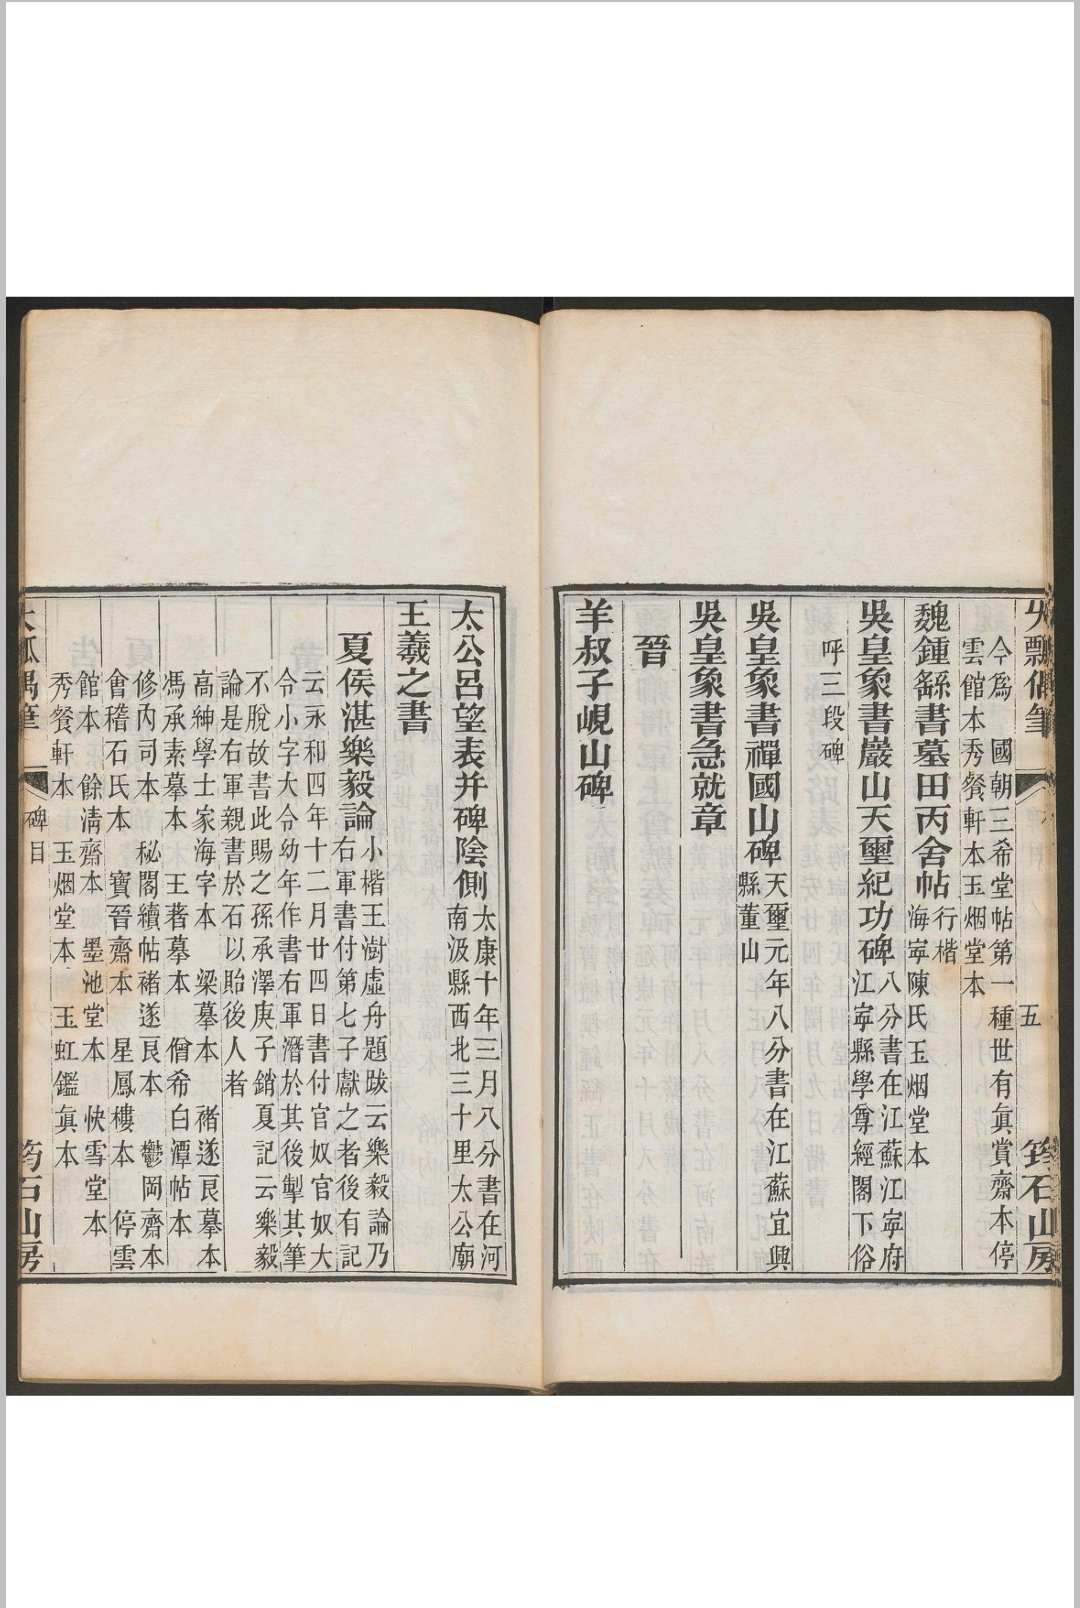 今爲　國朝三希堂帖第一種世有眞賞齋本停
雲館本秀餐軒本玉烟堂本
魏鍾繇書墓田丙舍帖行楷
海寧陳氏玉烟堂本
吳皇象書巖山天璽紀功碑八分書在江蘇江寧府
江寧縣學尊經閣下俗
呼三段碑
吳皇象書禪國山碑天璽元年八分書在江蘇宜興
縣董山
吳皇象書急就章
晉
羊叔子峴山碑
五
筠石山房
太公呂望表并碑陰側太康十年三月八分書在河
南汲縣西北三十里太公廟
王羲之書
夏侯湛樂毅論小楷王澍虛舟題跋云樂毅論乃
右軍書付第七子獻之者後有記
云永和四年十二月廿四日書付官奴官奴大
令小字大令幼年作書右軍潛於其後掣其筆
不脫故書此賜之孫承澤庚子銷夏記云樂毅
論是右軍親書於石以貽後人者
高紳學士家海字本　梁摹本　褚遂良摹本
馮承素摹本　王著摹本　僧希白潭帖本
修內司本　秘閣續帖褚遂良本　鬱岡齋本
會稽石氏本　寶晉齋本　星鳳樓本　停雲
館本　餘清齋本　墨池堂本　快雪堂本
秀餐軒本　玉烟堂本　玉虹鑑眞本
碑目
筠石山房